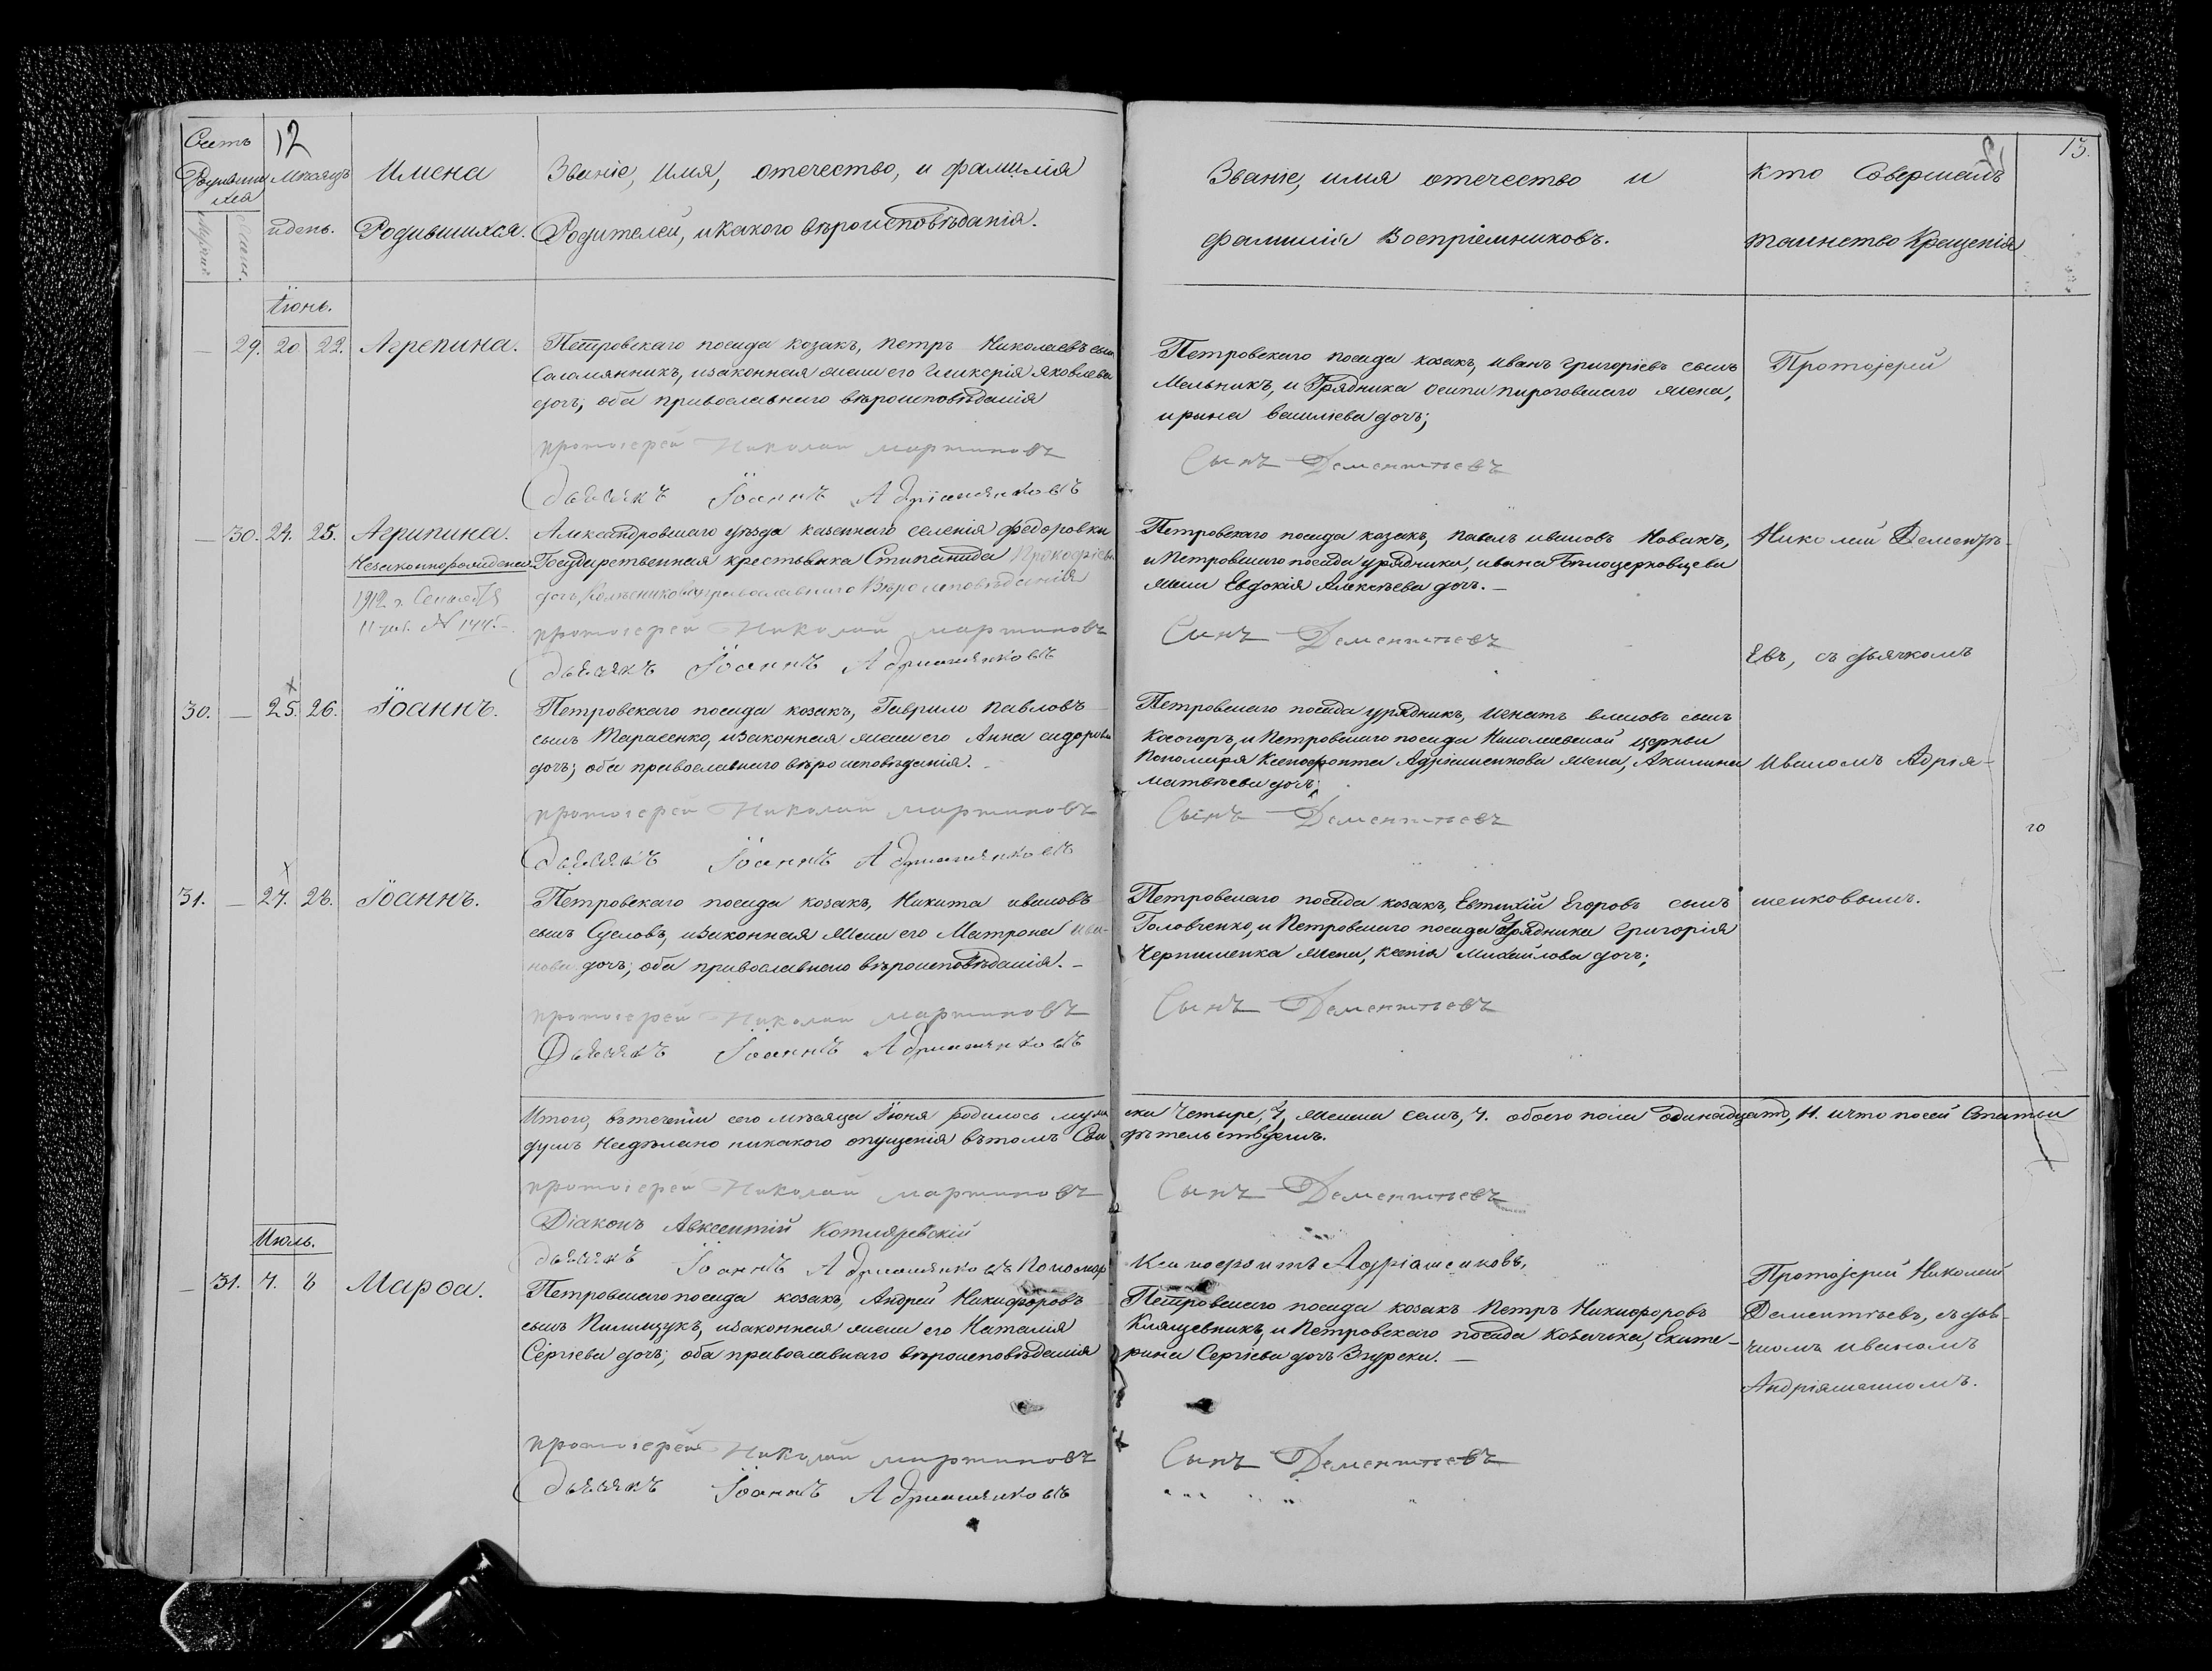 Счетъ
Родившихся
Мужеска
Женск.
12
Мѣсяцъ
и день.
Имена
Родившихся.
Званіе, имя, отечество, и фамилія
Родителей, и какого вѣроисповѣданія.
Званіе, имя отечество и
фамилія Воспріемниковъ.
Кто Совершалъ
таинство Крещенія
13.
Іюнь.
— 29. 20 22. Агрепина.
Петровскаго посада козакъ, Петръ Николаевъ сынъ
Саламянникъ, изаконная жена его Гликерія Яковлева
дочь, оба православнаго вѣроисповѣданія
протоіерей Николай мартиновъ
Дьячокъ Іоаннъ Адріашенковъ
Петровскаго посада козакъ, иванъ григоріевъ сынъ
Мельникъ, и Урядника осипа пироговскаго жена,
ирина василіева дочь;
Сынъ Дементьевъ
Протоіерей
— 30. 24. 25. Агрипина.
Незаконнорожденная
1912 г. Сентября
Александровскаго уѣзда казеннаго селенія Федоровки
Государственная крестьянка Стипанида Прокофіева
дочь, православнаго Вѣроисповѣданія
протоіерей Николай мартиновъ
Дьячокъ Іоаннъ Адріашенковъ
Петровскаго посада козакъ, павелъ ивановъ Новакъ,
и Петровскаго посада урядника, ивана Бѣлоцерковцева
жена Евдокія Алексѣева дочь. —
Сынъ Дементьевъ
Николай Дементь-
евъ, съ дьячкомъ
30. — 25. 26. Іоаннъ.
Петровскаго посада козакъ, Гаврило павловъ
сынъ Тарасенко, изаконная жена его Анна сидорова
дочь; оба православнаго вѣроисповѣданія.
протоіерей Николай мартиновъ
Дьячокъ Іоаннъ Адріашенковъ
Петровскаго посада урядникъ, Игнатъ власовъ сынъ
Косогоръ, и Петровскаго посада Николаевской церкви
Пономаря Ксенофонта Адріашенкова жена, Акилина
матвѣева дочь;
Сынъ Дементьевъ
Иваномъ Адрія-
31. — 27. 28. Іоаннъ.
Петровскаго посада козакъ, Никита ивановъ
сынъ Сусловъ, изаконная жена его Матрона ива-
нова дочь; оба православнаго вѣроисповѣданія. —
протоіерей Николай мартиновъ
Дьячокъ Іоаннъ Адріашенковъ
Петровскаго посада козакъ, Евтихій Егоровъ сынъ
Головченко, и Петровскаго посада Урядника григорія
Чернишенка жена, ксенія Михайлова дочь;
Сынъ Дементьевъ
шенковымъ.
Итого, въ теченіи сего мѣсяца Іюня родилось муже ска Четыре, 4, женска семъ, 7. обоего пола одинадцать, 11. и что посей Статьи
думъ Несдѣлано никакого опущенія въ томъ Сви дѣтельствуемъ.
протоіерей Николай мартиновъ Сынъ Дементьевъ
Діаконъ Авксентій Котляревскій
Дьячокъ Іоаннъ Адріашенковъ Пономарь Ксенофонтъ Адріашенковъ,
Июль.
— 31. 7. 8 Марѳа.
Петровскаго посада козакъ, Андрей Никифоровъ
сынъ Пилипцукъ, изаконная жена его Наталія
Сергіева дочь; оба православнаго вѣроисповѣданія
протоіерей Николай мартиновъ
Дьячокъ Іоаннъ Адріашенковъ
Петровскаго посада козакъ Петръ Никифоровъ
Клящевникъ, и Петровскаго посада козачка, Екате-
рина Сергіева дочь Згурска. —
Сынъ Дементьевъ
Протоіерей Николай
Дементіевъ, съ дья-
чкомъ иваномъ
Андріяшенкомъ.